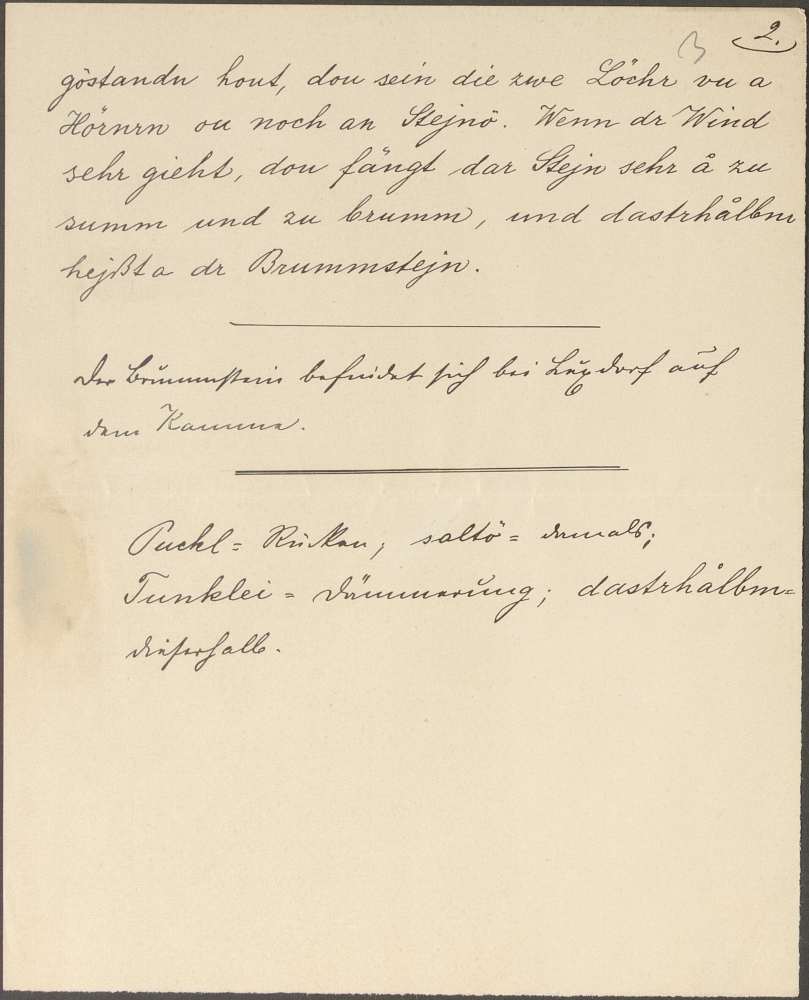 3 2.
göstandn hout, dou sein die zwe Löchr vu a
Hörnrn ou noch an Stejnö. Wenn dr Wind
sehr gieht, dou fängt dar Stejn sehr å zu
summ und zu brumm, und dastrhålbm
hejßt a dr Brummstejn.
Der Brummstein befindet sich bei Luxdorf auf
dem Kamme.
Puckl = Rücken; saltö = damals;
Tunklei = Dämmerung; dastrhålbm =
dieserhalb.